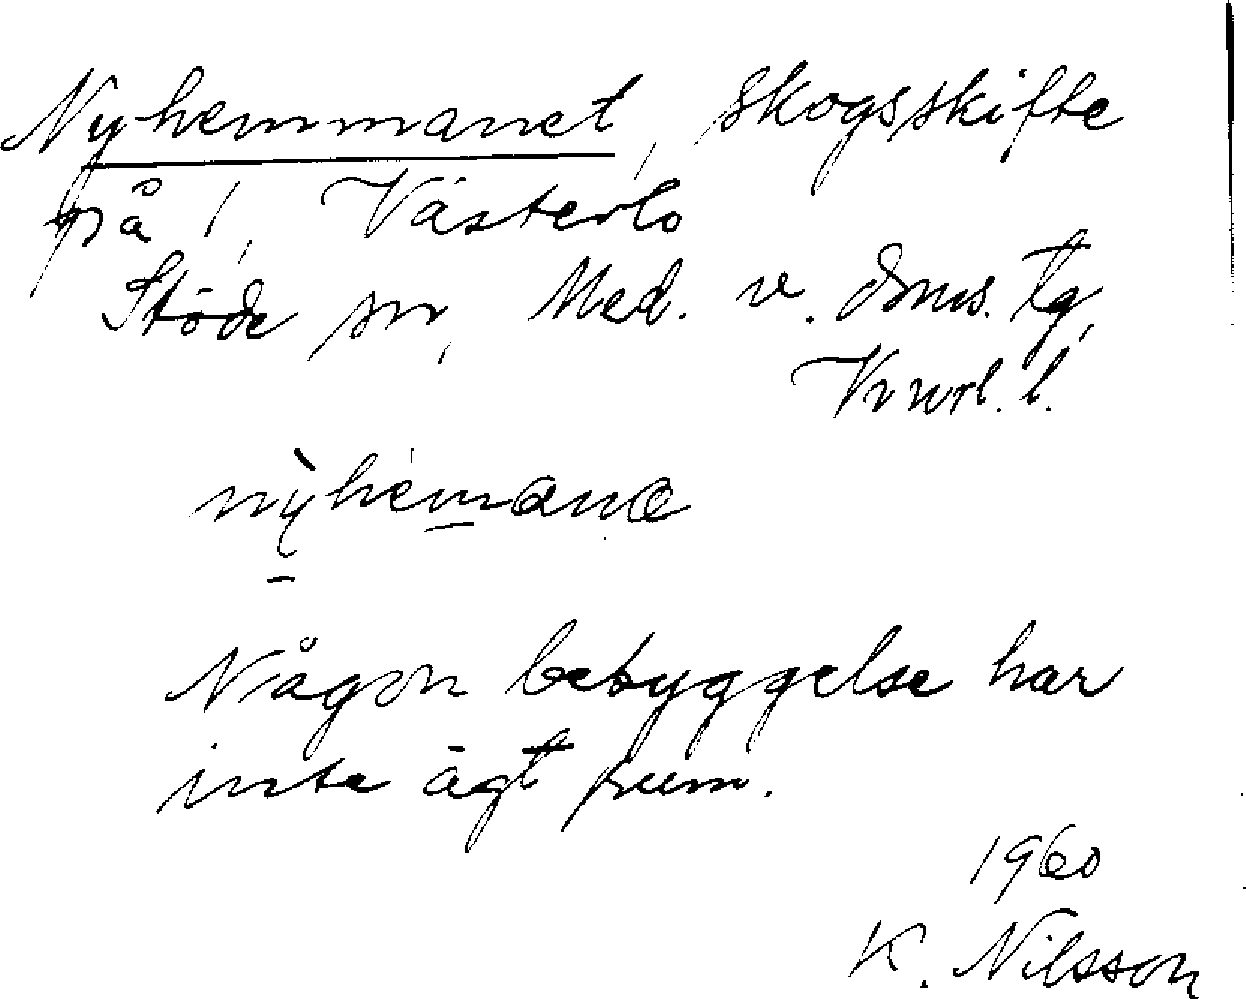 Nyhemmanet, skogsskifte
på 1, Västerlo
Stöde sn, Med. v. doms. tg,
Vnorl. l.
nỳhémana
Någon bebyggelse har
inte ägt rum.
1960
K. Nilsson